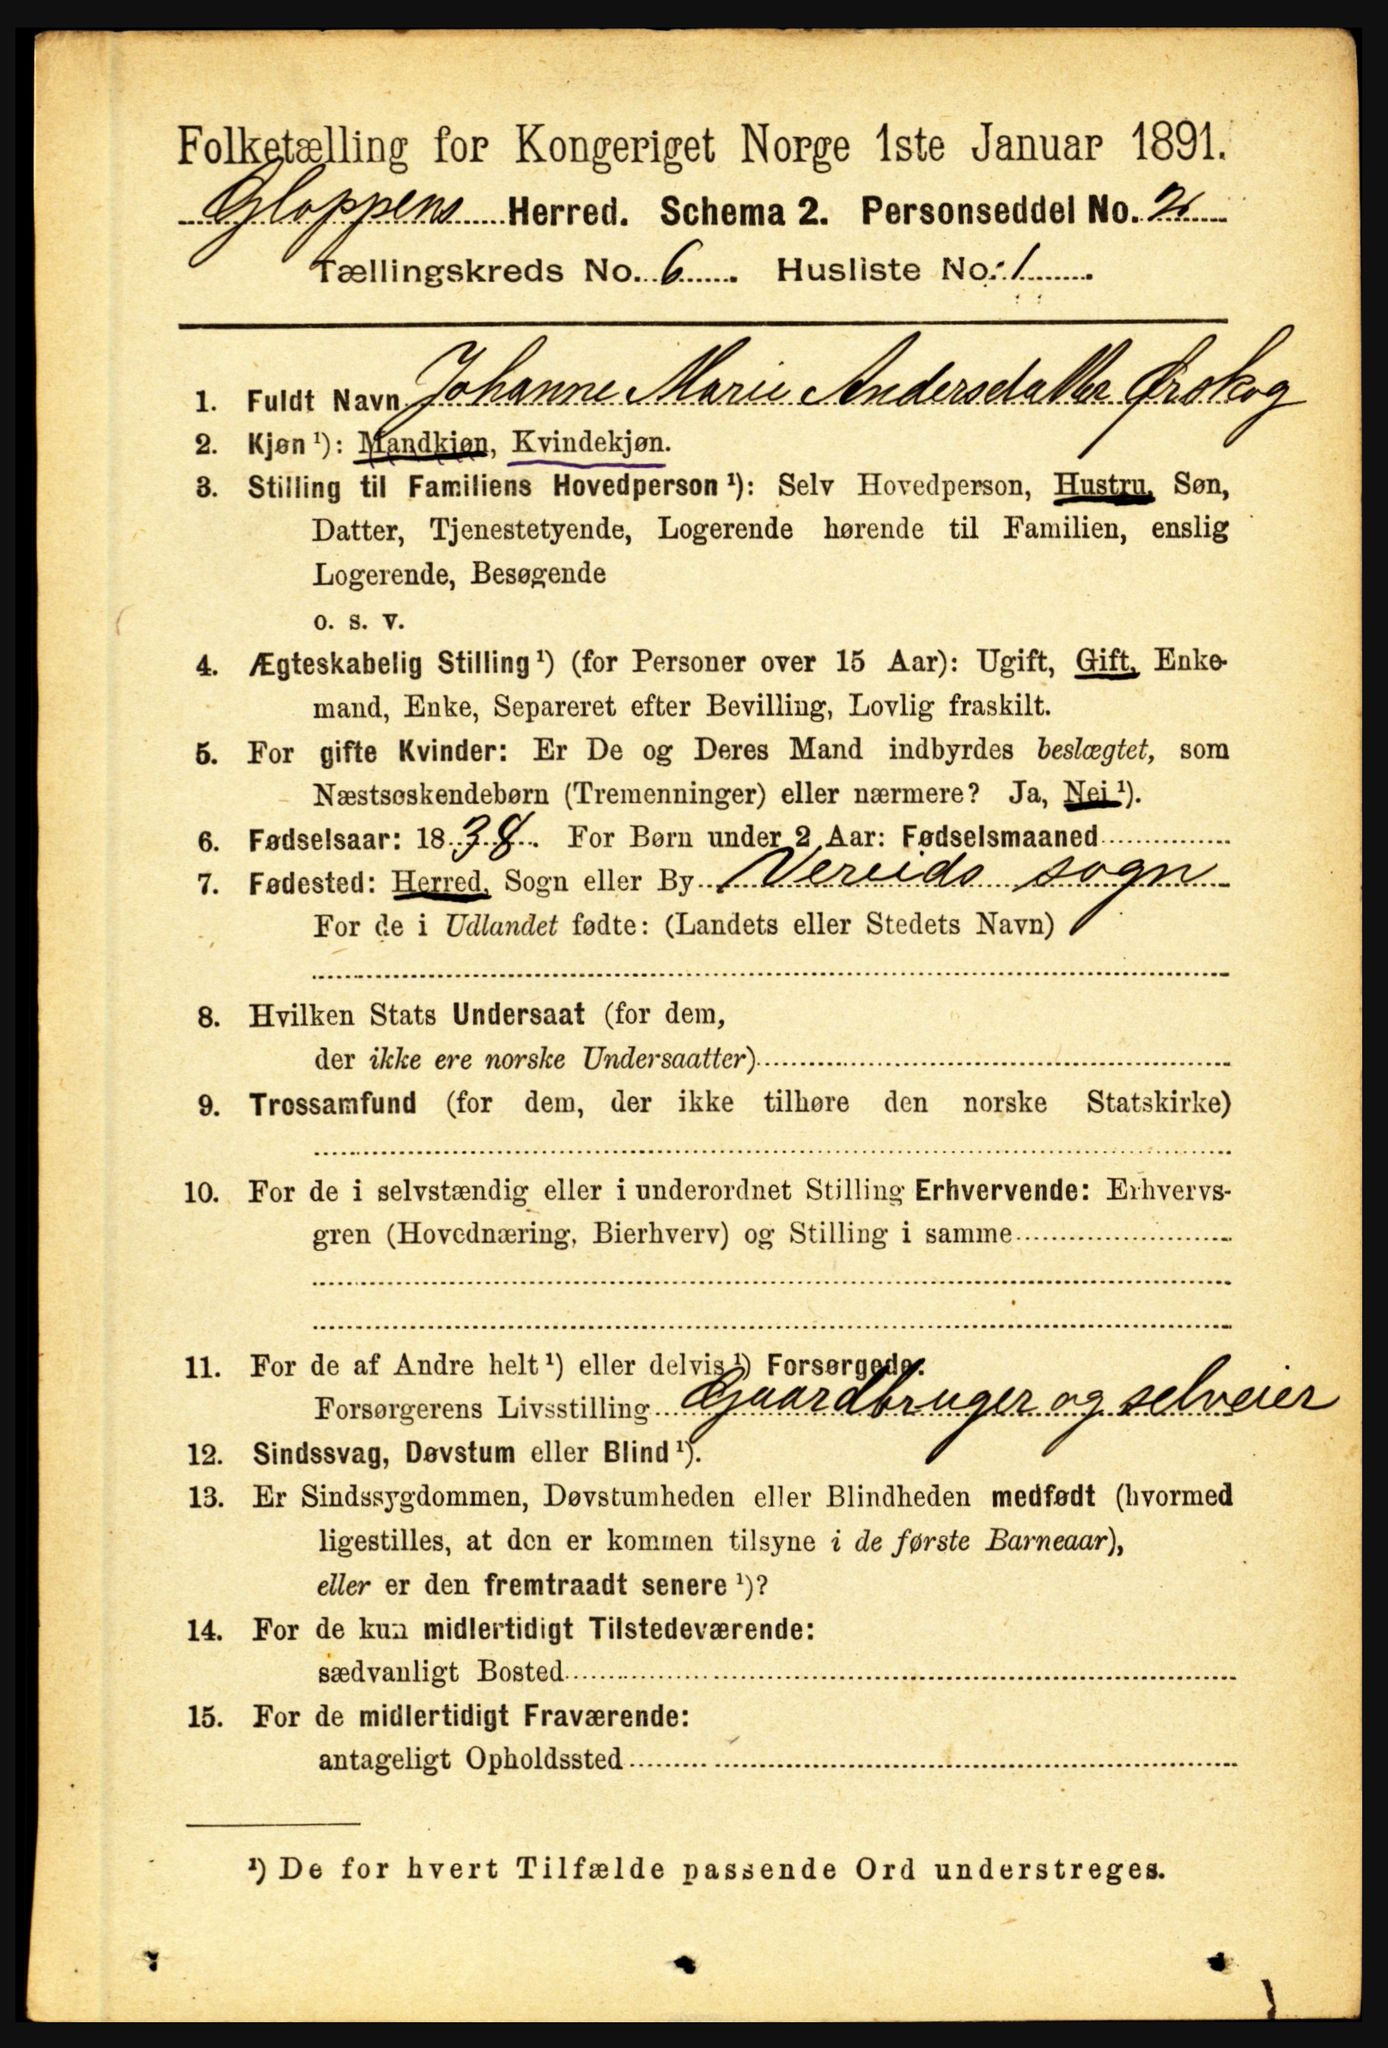 Folketælling for Kongeriget Norge 1ste Januar 1891.
Gloppens Herred. Schema 2. Personseddel No. 2
Tællingskreds No. 6. Husliste No. 1.
1. Fuldt Navn Johanne Marie Andersdatter Ørskog
2. Kjøn ¹): Mandkjøn, Kvindekjøn.
3. Stilling til Familiens Hovedperson ¹): Selv Hovedperson, Hustru, Søn,
Datter, Tjenestetyende, Logerende hørende til Familien, enslig
Logerende, Besøgende
o. s. v.
4. Ægteskabelig Stilling ¹) (for Personer over 15 Aar): Ugift, Gift, Enke-
mand, Enke, Separeret efter Bevilling, Lovlig fraskilt.
5. For gifte Kvinder: Er De og Deres Mand indbyrdes beslægtet, som
Næstsøskendebørn (Tremenninger) eller nærmere? Ja, Nei ¹).
6. Fødselsaar: 1838. For Børn under 2 Aar: Fødselsmaaned
7. Fødested: Herred, Sogn eller By Vereids sogn
For de i Udlandet fødte: (Landets eller Stedets Navn)
8. Hvilken Stats Undersaat (for dem,
der ikke ere norske Undersaatter)
9. Trossamfund (for dem, der ikke tilhøre den norske Statskirke)
10. For de i selvstændig eller i underordnet Stilling Erhvervende: Erhvervs-
gren (Hovednæring, Bierhverv) og Stilling i samme
11. For de af Andre helt ¹) eller delvis ¹) Forsørgede:
Forsørgerens Livsstilling Gaardbruger og selveier
12. Sindssvag, Døvstum eller Blind ¹).
13. Er Sindssygdommen, Døvstumheden eller Blindheden medfødt (hvormed
ligestilles, at den er kommen tilsyne i de første Barneaar),
eller er den fremtraadt senere ¹)?
14. For de kun midlertidigt Tilstedeværende:
sædvanligt Bosted
15. For de midlertidigt Fraværende:
antageligt Opholdssted
¹) De for hvert Tilfælde passende Ord understreges.